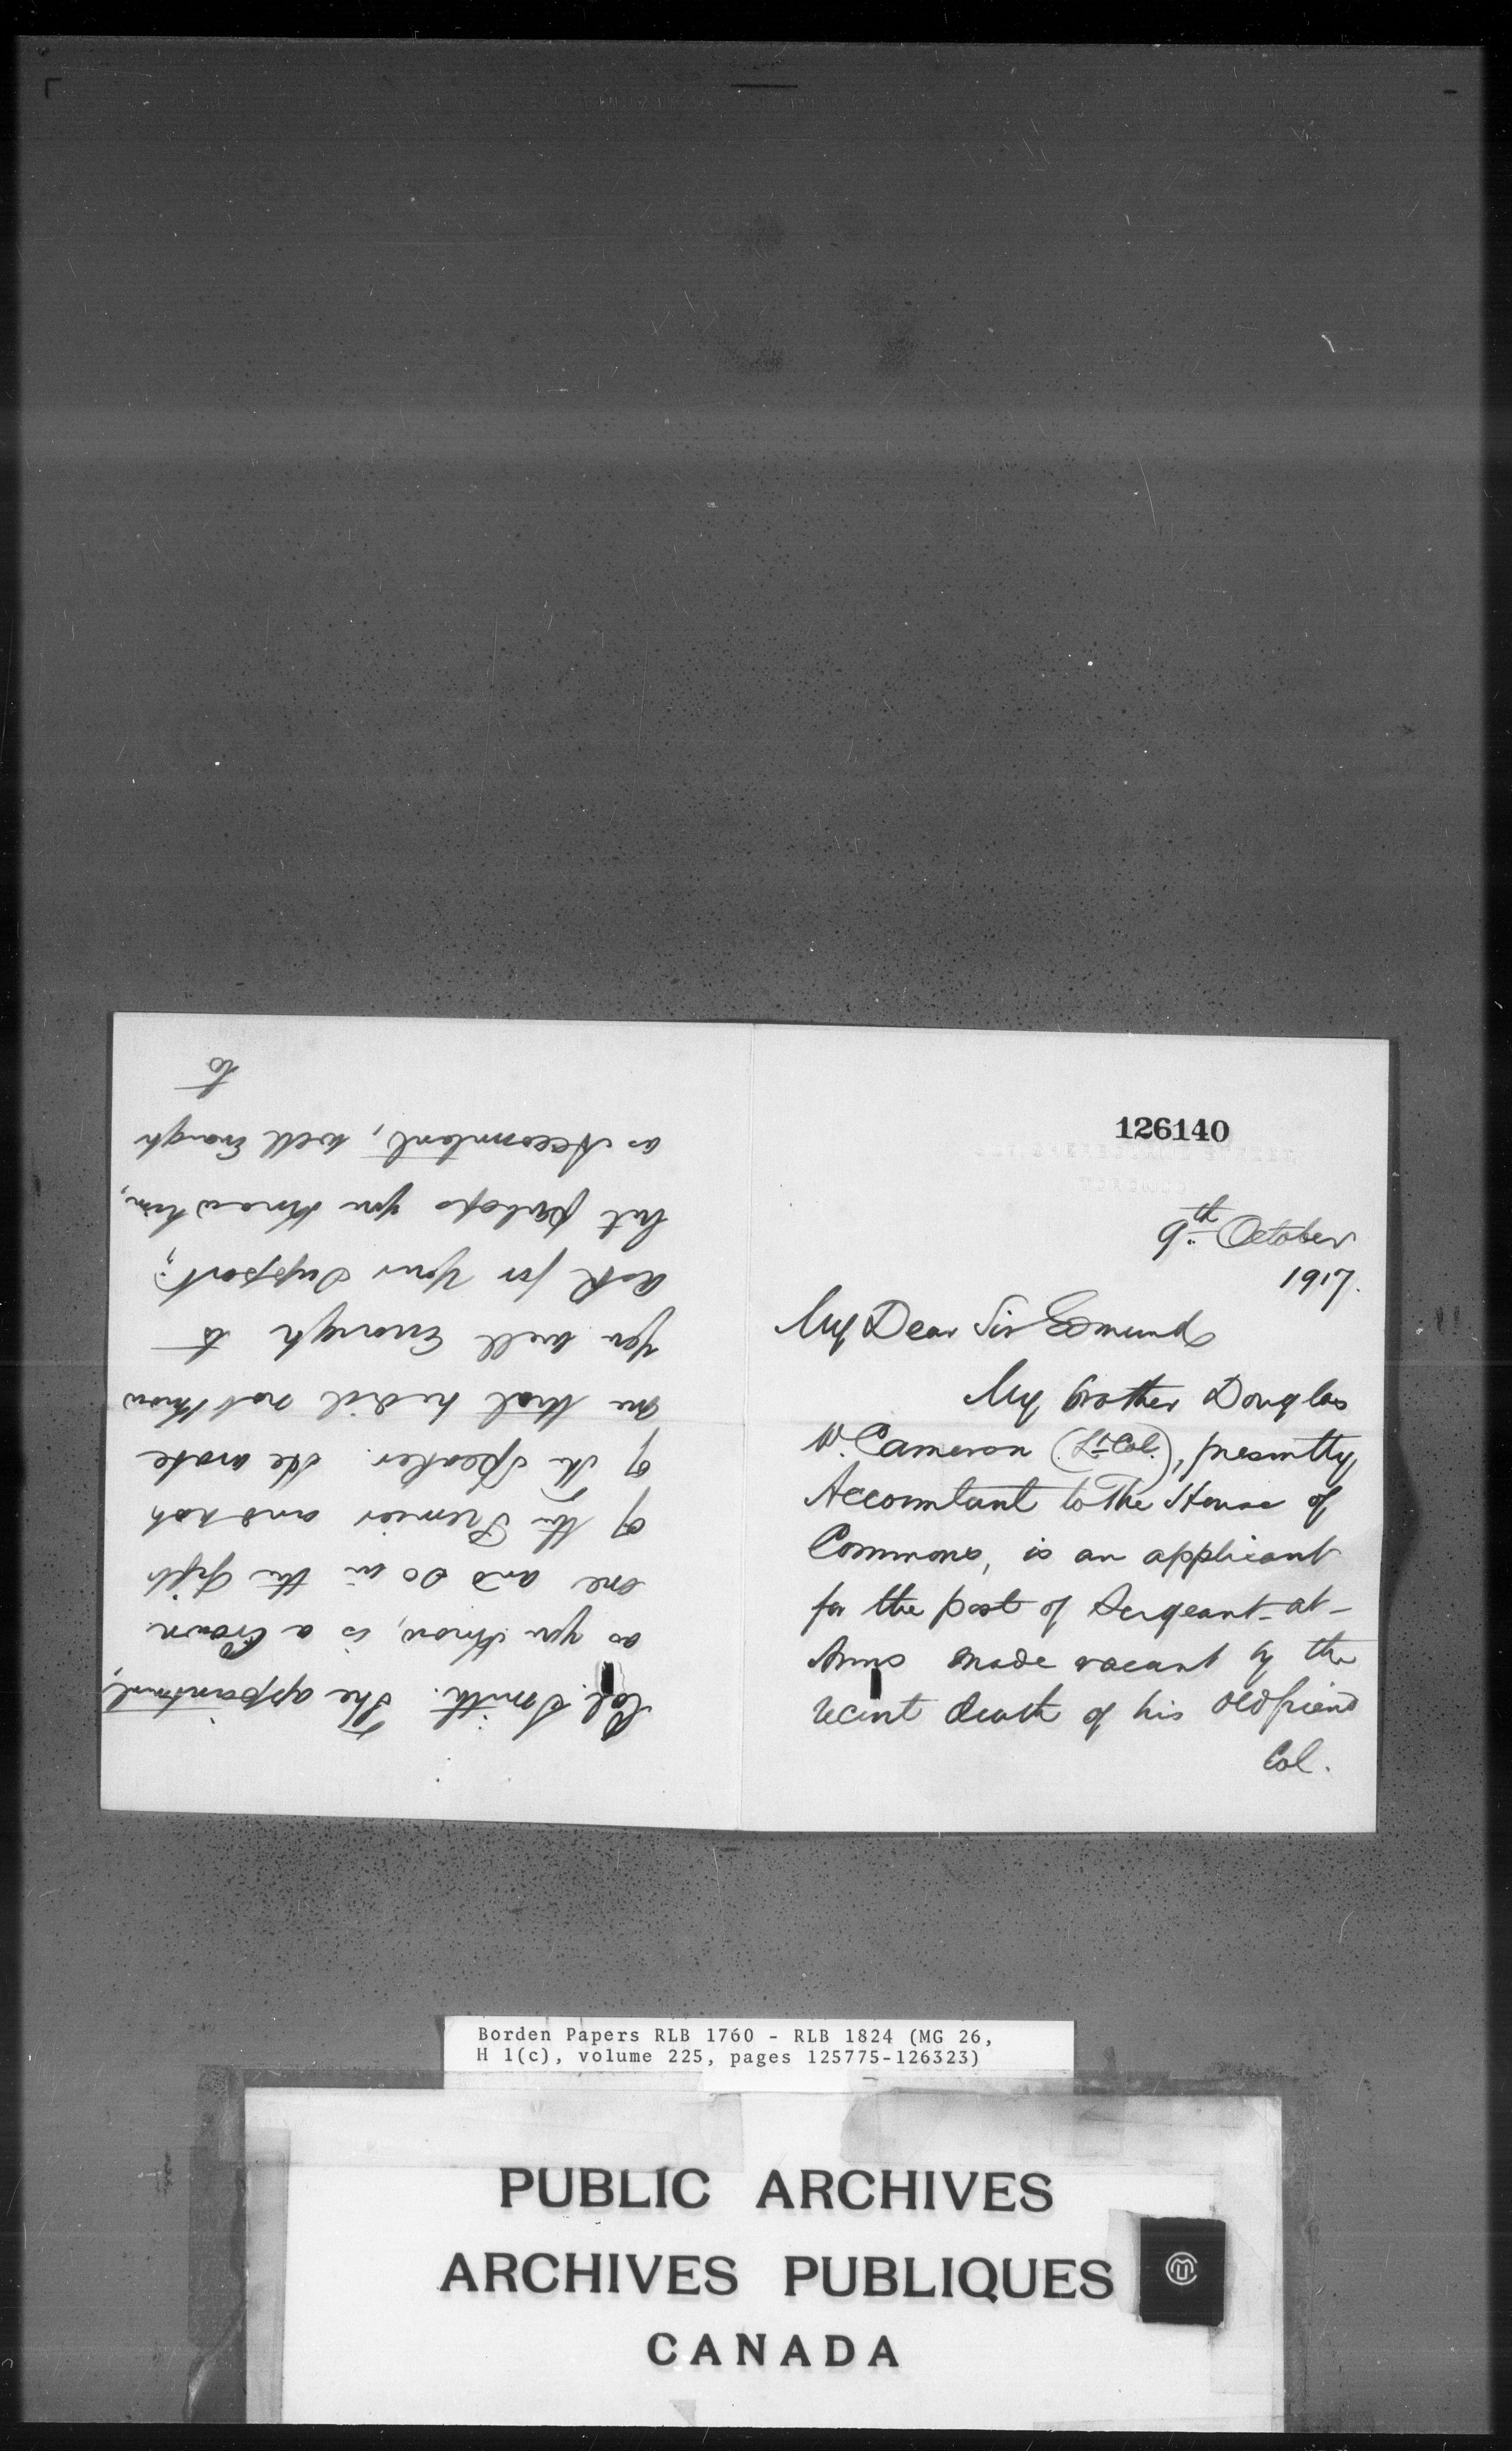 126140
9th October
1917.
My Dear Sir Edmund
My brother Douglas
W. Cameron (Lt Col.), presently
Accountant to the House of
Commons, is an applicant
for the post of Sergeant-at-
Arms made vacant by the
recent death of his old friend
Col.
Col. Smith. The appointment,
as you know, is a Crown
one and so in the gift
of the Premier and not
of the Speaker. He wrote
me that he did not know
you well enough to
ask for your support;
but perhaps you know him,
as Accountant, well enough
to
Borden Papers RLB 1760 - RLB 1824 (MG 26,
H 1(c), volume 225, pages 125775-126323)
PUBLIC ARCHIVES
ARCHIVES PUBLIQUES
CANADA